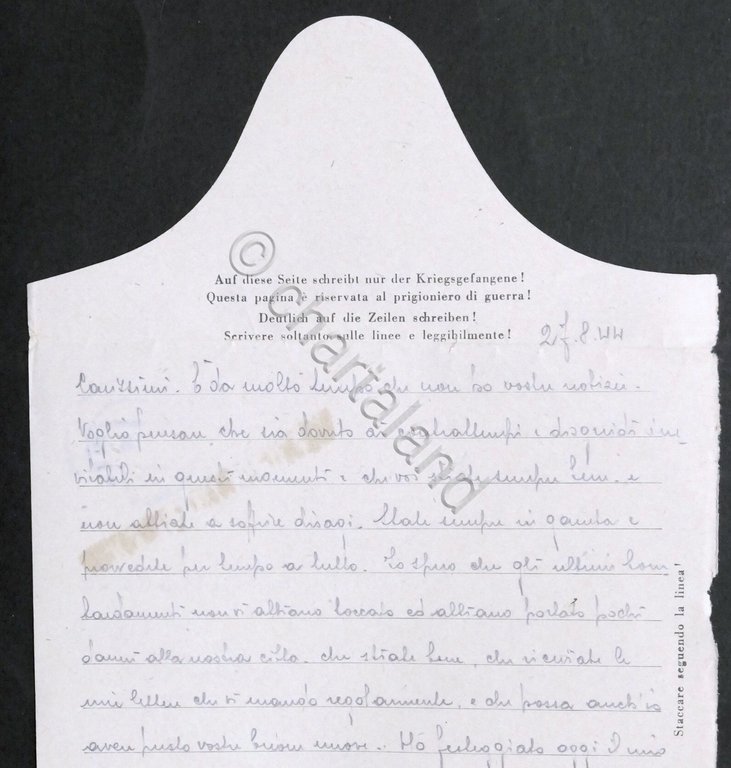 Auf diese Seite schreibt nur der Kriegsgefangene!
Questa pagina è riservata al prigioniero di guerra!
Deutlich auf die Zeilen schreiben!
Scrivere soltanto sulle linee e leggibilmente!
27.8.44
Carissimi. È da molto tempo che non ho vostre notizie.
Voglio pensare che sia dovuto a contrattempi e disguidi ine-
vitabili in questi momenti e che voi stiate sempre bene. e
non abbiate a soffrire disagi. State sempre in gamba e
provvedete per tempo a tutto. Io spero che gli ultimi bom
bardamenti non vi abbiano toccato ed abbiano portato pochi
danni alla nostra città. che stiate bene, che riceviate le
mie lettere che vi mando regolarmente, e che possa anch'io
avere presto vostre buone nuove. Ho festeggiato oggi il mio
Staccare seguendo la linea!
© chartaland